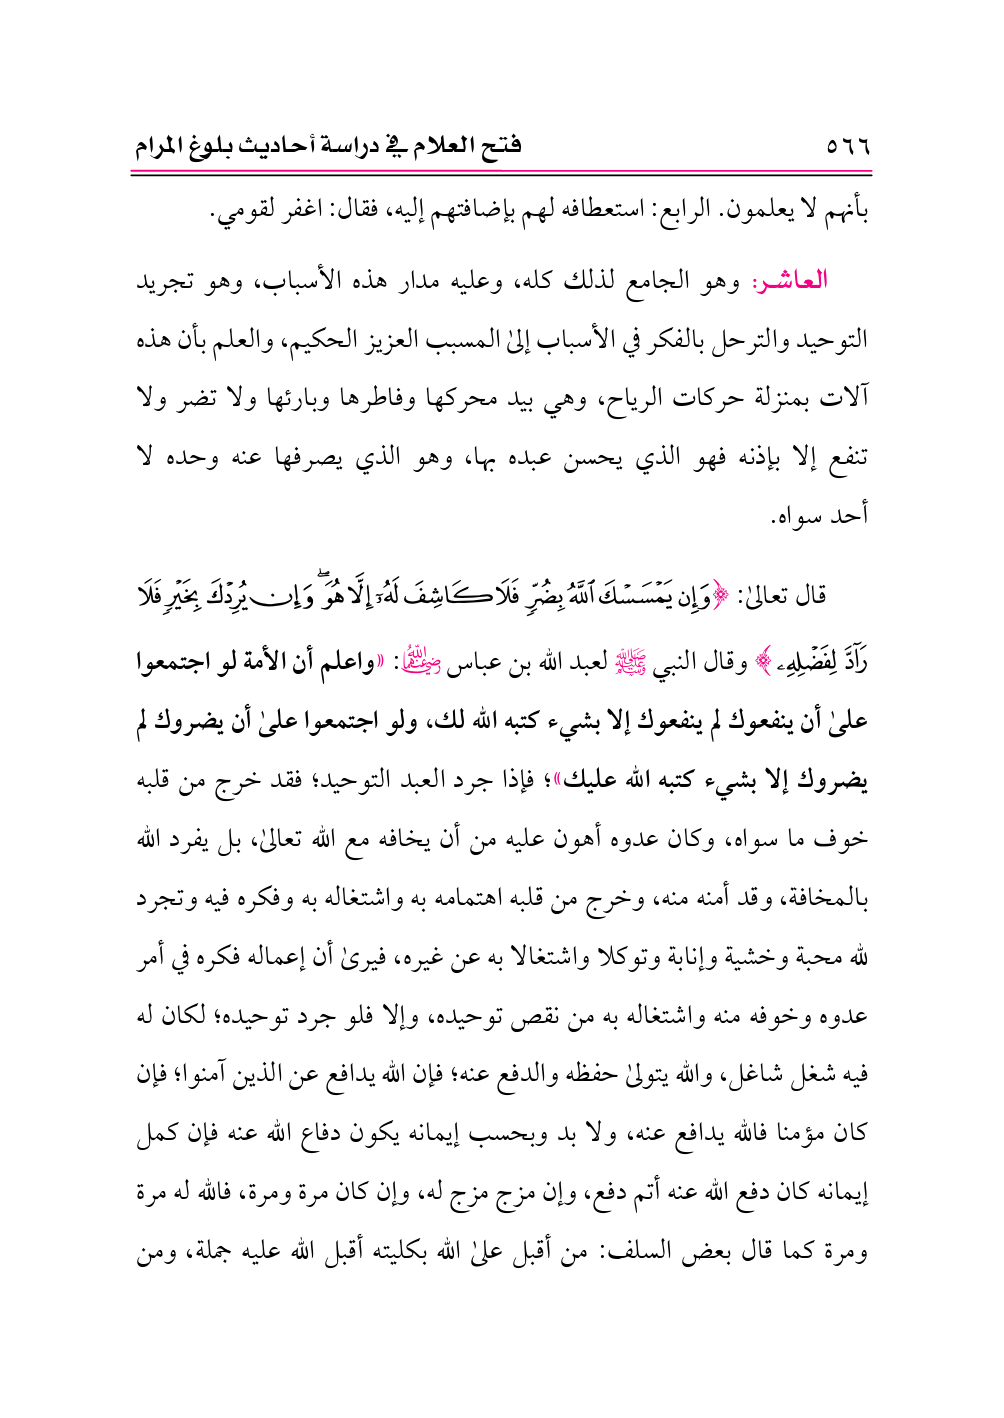 ٥٦٦ فتح العلام في دراسة أحاديث بلوغ المرام
بأنهم لا يعلمون. الرابع: استعطافه لهم بإضافتهم إليه، فقال: اغفر لقومي.
العاشر: وهو الجامع لذلك كله، وعليه مدار هذه الأسباب، وهو تجريد
التوحيد والترحل بالفكر في الأسباب إلىٰ المسبب العزيز الحكيم، والعلم بأن هذه
آلات بمنزلة حركات الرياح، وهي بيد محركها وفاطرها وبارئها ولا تضر ولا
تنفع إلا بإذنه فهو الذي يحسن عبده بها، وهو الذي يصرفها عنه وحده لا
أحد سواه.
قال تعالىٰ: ﴿وَإِن يَمْسَسْكَ ٱللَّهُ بِضُرٍّ فَلَا كَاشِفَ لَهُۥٓ إِلَّا هُوَ ۖ وَإِن يُرِدْكَ بِخَيْرٍ فَلَا
رَآدَّ لِفَضْلِهِۦ﴾ وقال النبي ﷺ لعبد الله بن عباس رضي الله عنهما: «واعلم أن الأمة لو اجتمعوا
علىٰ أن ينفعوك لم ينفعوك إلا بشيء كتبه الله لك، ولو اجتمعوا علىٰ أن يضروك لم
يضروك إلا بشيء كتبه الله عليك»؛ فإذا جرد العبد التوحيد؛ فقد خرج من قلبه
خوف ما سواه، وكان عدوه أهون عليه من أن يخافه مع الله تعالىٰ، بل يفرد الله
بالمخافة، وقد أمنه منه، وخرج من قلبه اهتمامه به واشتغاله به وفكره فيه وتجرد
لله محبة وخشية وإنابة وتوكلا واشتغالا به عن غيره، فيرىٰ أن إعماله فكره في أمر
عدوه وخوفه منه واشتغاله به من نقص توحيده، وإلا فلو جرد توحيده؛ لكان له
فيه شغل شاغل، والله يتولىٰ حفظه والدفع عنه؛ فإن الله يدافع عن الذين آمنوا؛ فإن
كان مؤمنا فالله يدافع عنه، ولا بد وبحسب إيمانه يكون دفاع الله عنه فإن كمل
إيمانه كان دفع الله عنه أتم دفع، وإن مزج مزج له، وإن كان مرة ومرة، فالله له مرة
ومرة كما قال بعض السلف: من أقبل علىٰ الله بكليته أقبل الله عليه جملة، ومن